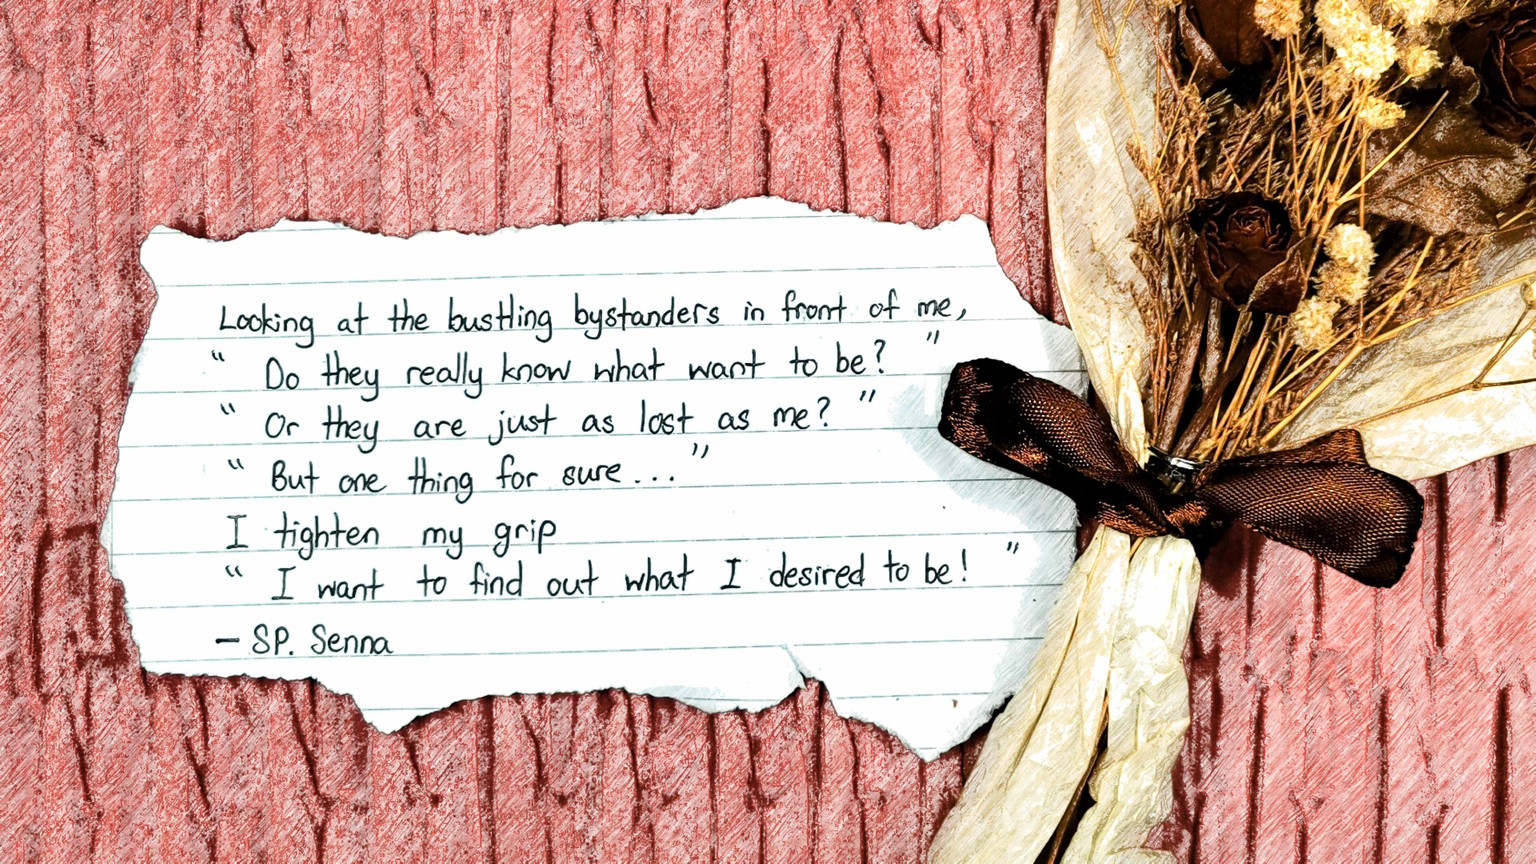 Looking at the bustling bystanders in front of me,
" Do they really know what want to be? "
" Or they are just as lost as me? "
" But one thing for sure... "
I tighten my grip
" I want to find out what I desired to be! "
— SP. Senna